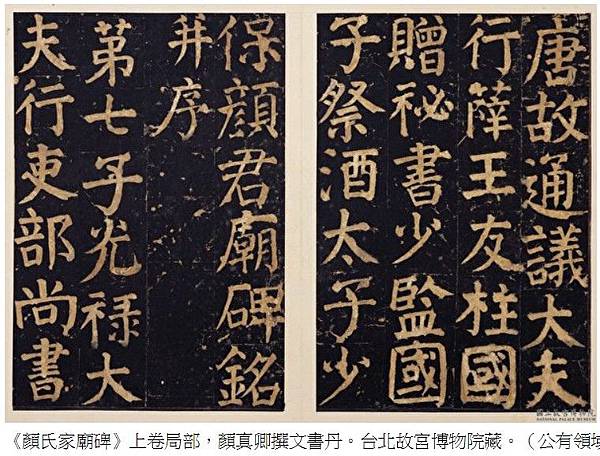 唐故通議大夫
行薛王友柱國
贈祕書少監國
子祭酒太子少
保顏君廟碑銘
并序
第七子光祿大
夫行吏部尚書
國立故宮博物院
NATIONAL PALACE MUSEUM
《顏氏家廟碑》上卷局部，顏真卿撰文書丹。台北故宮博物院藏。（公有領域